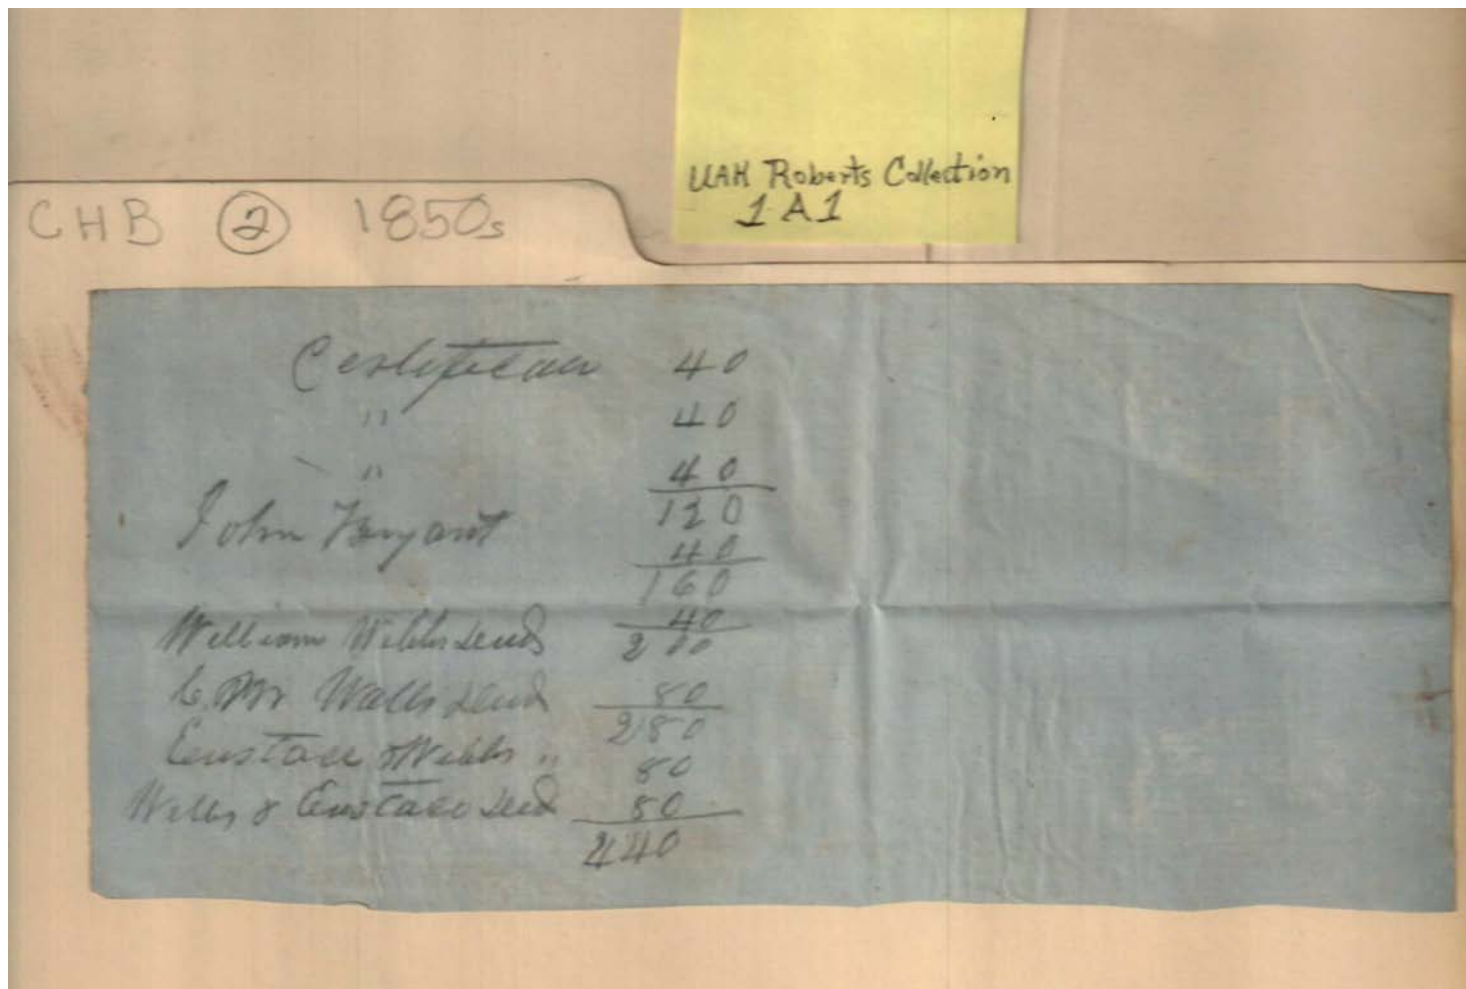 UAH Roberts Collection
1A1
CHB 2 1850s
Certificate 40
" 40
" 40
120
John Bryant 40
160
William Webbs deed 40
200
C. M. Walls deed 80
280
Eustace & Webbs " 80
Webbs & Eustace deed 80
440